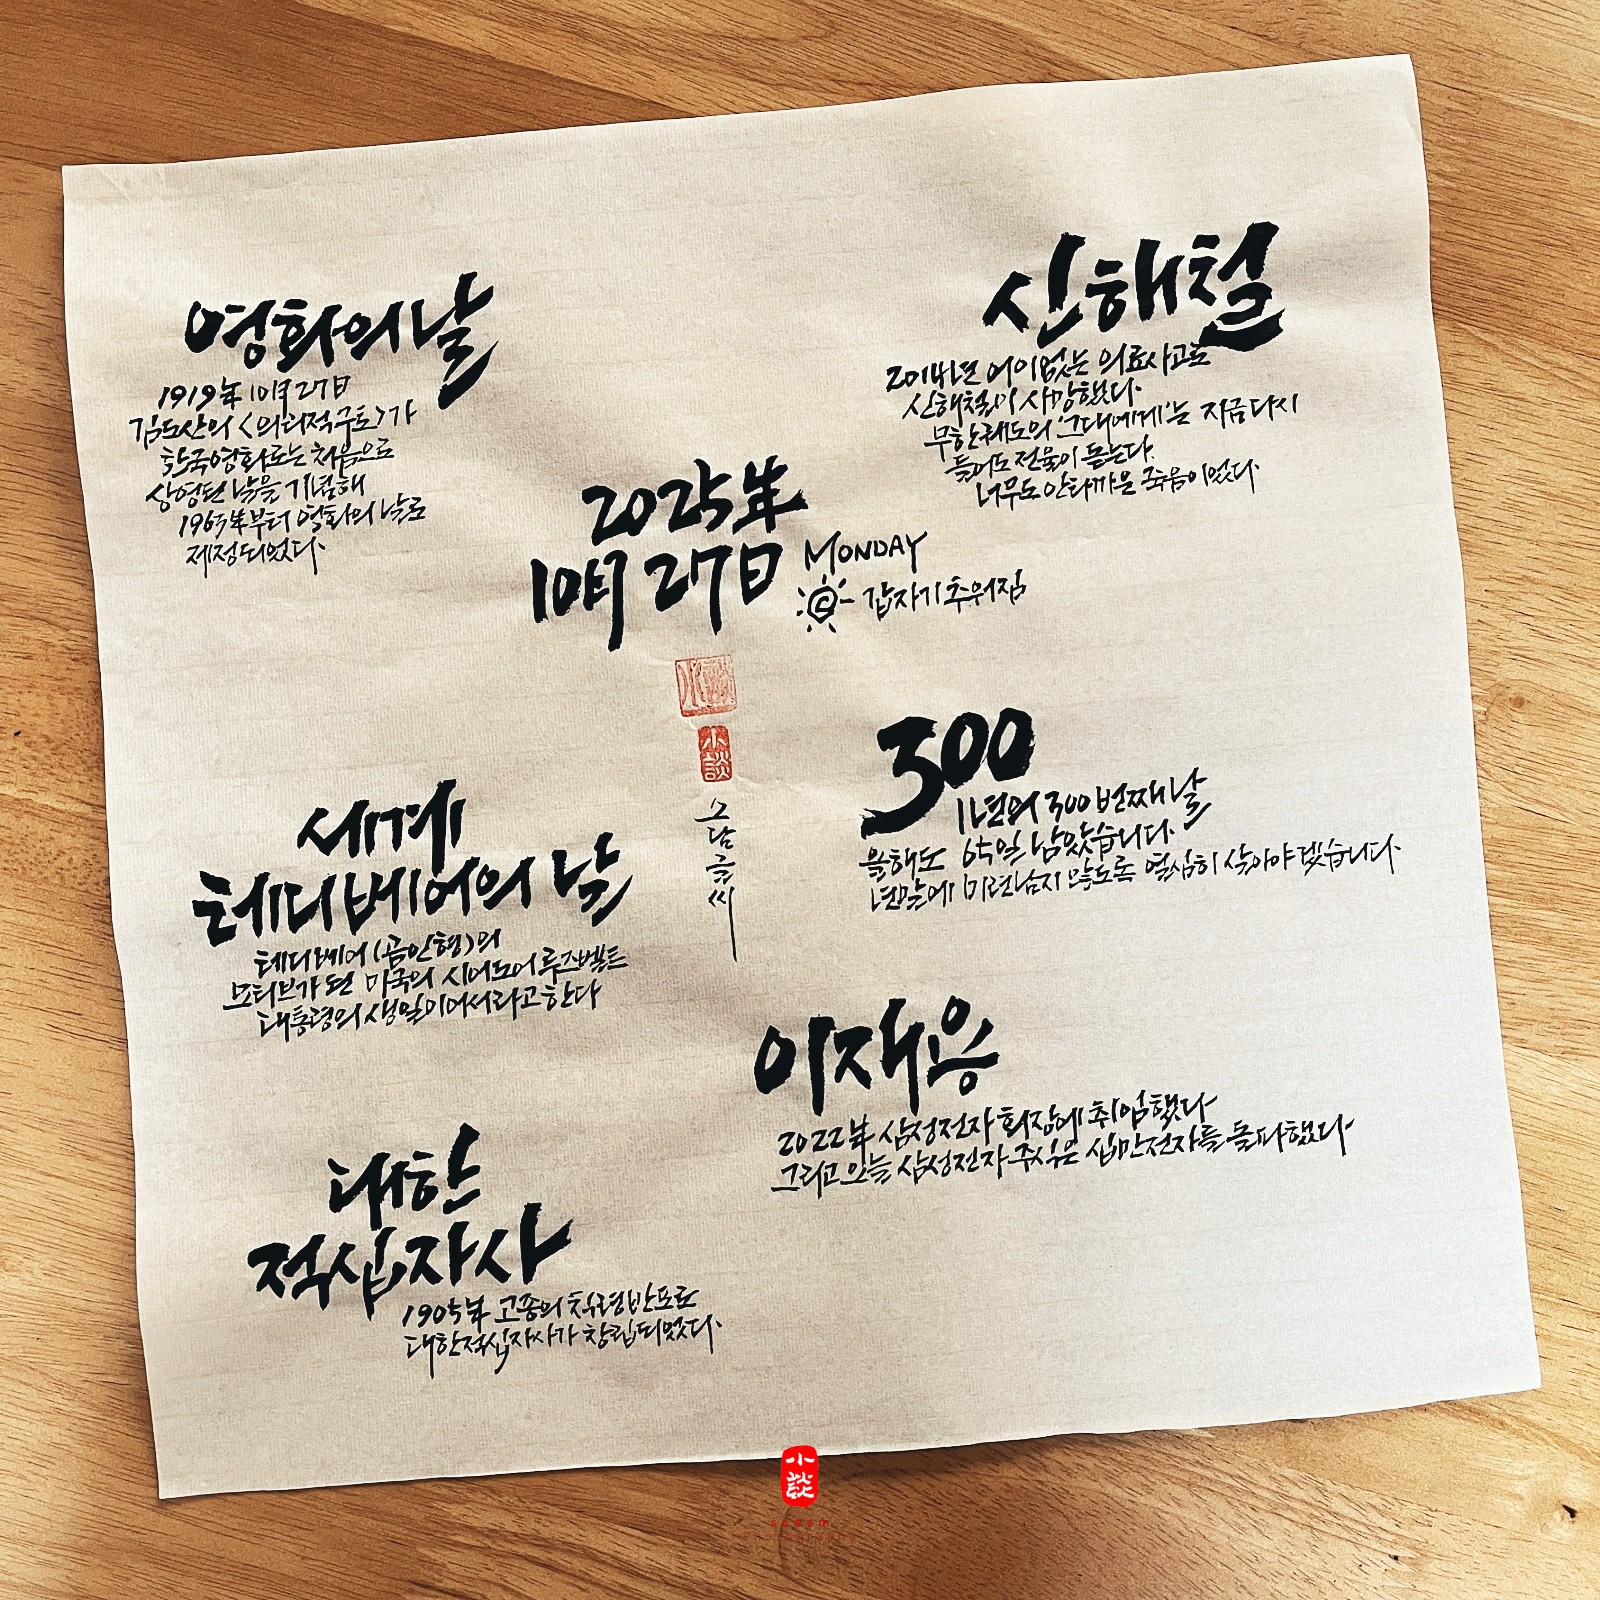 영화의 날
1919年 10月 27日
김도산의 <의리적구토>가
한국영화로는 처음으로
상영된 날을 기념해
1963年부터 영화의 날로
제정되었다.
신해철
2014년 어이없는 의료사고로
신해철이 사망했다.
무한궤도의 '그대에게'는 지금 다시
들어도 전율이 돋는다.
너무도 안타까운 죽음이었다.
2025年
10月 27日
MONDAY
갑자기 추워짐
小談
소담글씨
300
1년의 300번째 날
올해도 65일 남았습니다.
년말에 미련남지 않도록 열심히 살아야겠습니다.
세계
테디베어의 날
테디베어(곰인형)의
모티브가 된 미국의 시어도어 루즈벨트
대통령의 생일이어서라고 한다
이재용
2022年 삼성전자 회장에 취임했다
그리고 오늘 삼성전자 주식은 십만전자를 돌파했다
대한
적십자사
1905年 고종의 칙령반포로
대한적십자사가 창립되었다.
小談